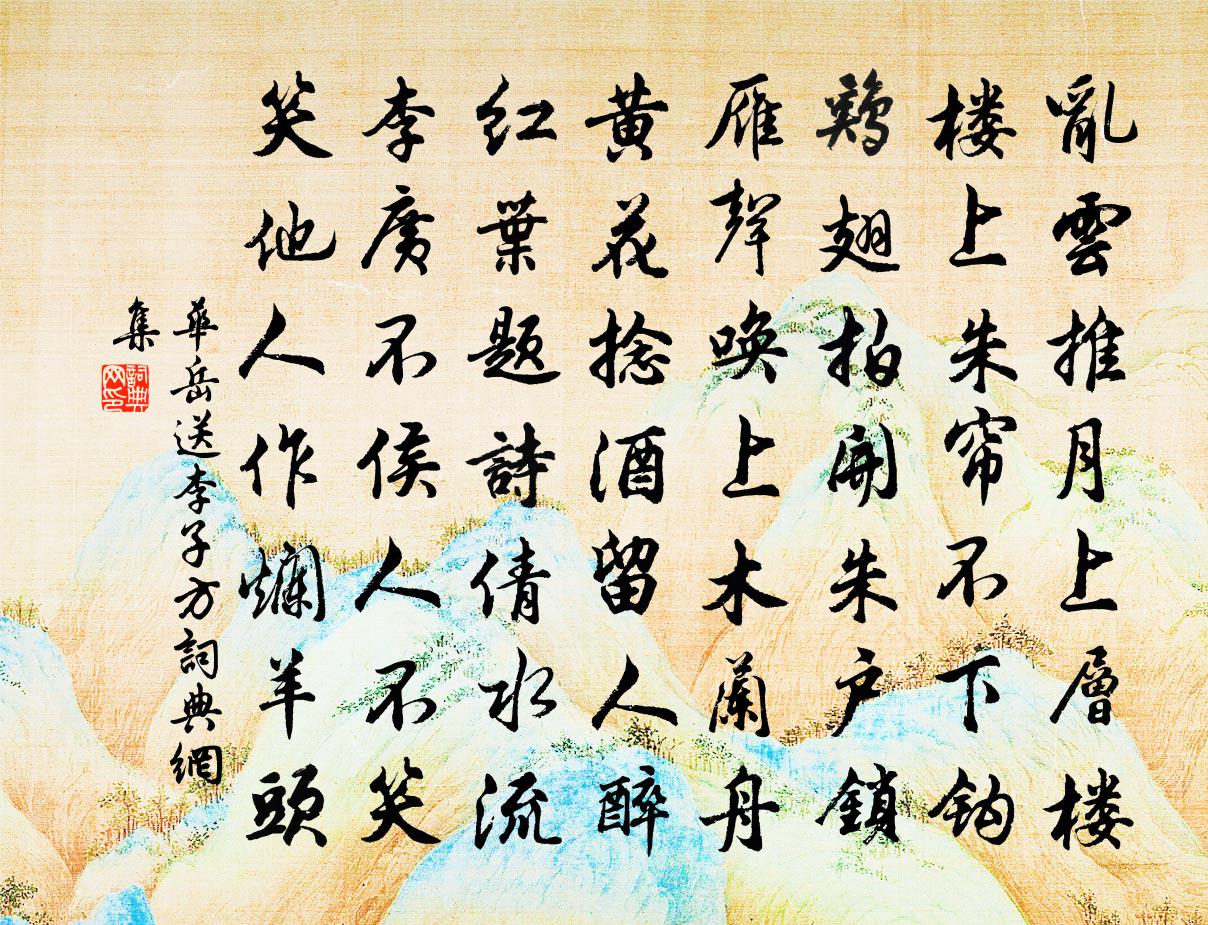 亂雲推月上層楼
楼上朱帘不下钩
鷄翅拍開朱户鎖
雁聲唤上木蘭舟
黄花捻酒留人醉
红葉题詩倩水流
李廣不侯人不笑
笑他人作爛羊頭
華岳送李子方詞典網
集
詞典網印